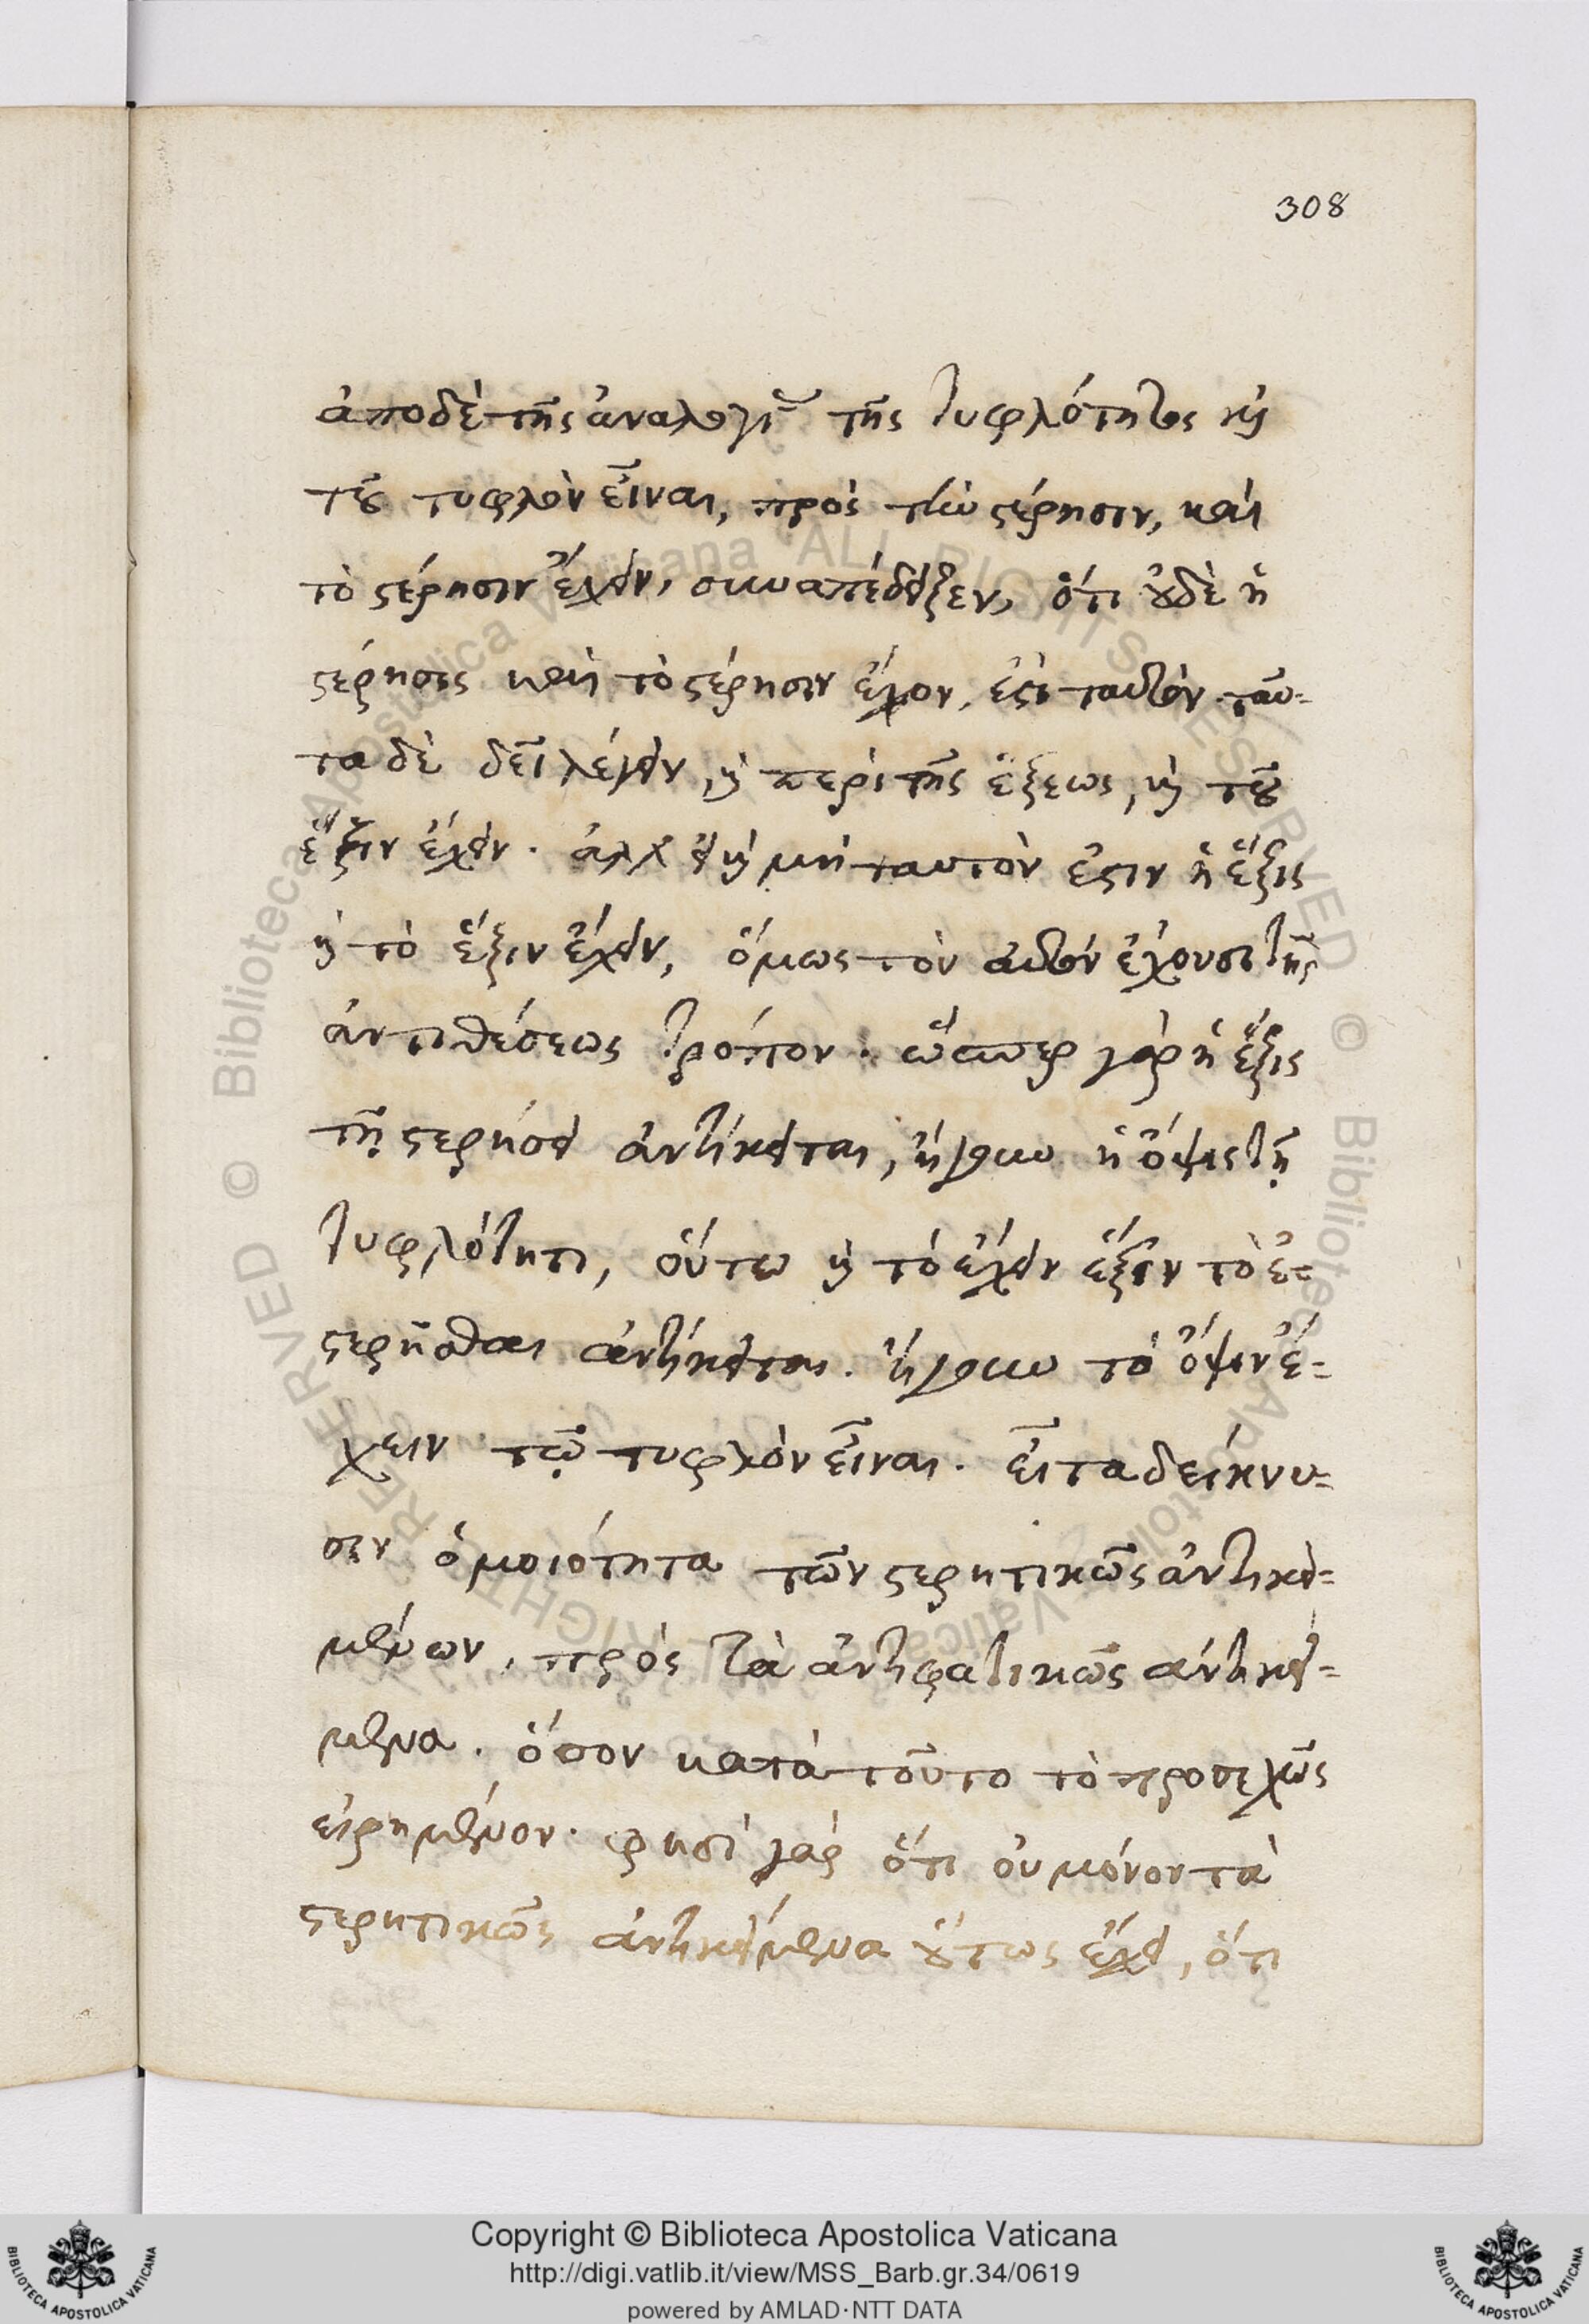 308
ἀπὸ δὲ τῆς ἀναλογίας τῆς τυφλότητος καὶ
τοῦ τυφλὸν εἶναι, πρὸς τὴν στέρησιν, καὶ
τὸ στέρησιν ἔχειν, συναπέδειξεν, ὅτι οὐδὲ ἡ
στέρησις καὶ τὸ στέρησιν ἔχον, ἐστὶ ταυτόν. ταῦ-
τα δὲ δεῖ λέγειν, καὶ περὶ τῆς ἕξεως, καὶ τοῦ
ἕξιν ἔχειν. ἀλλ' εἰ καὶ μὴ ταυτόν ἐστιν ἡ ἕξις
καὶ τὸ ἕξιν ἔχειν, ὅμως τὸν αὐτὸν ἔχουσι τῆς
ἀντιθέσεως τρόπον. ὥσπερ γὰρ ἡ ἕξις
τῇ στερήσει ἀντίκειται, ἤγουν ἡ ὄψις τῇ
τυφλότητι, οὕτω καὶ τὸ ἔχειν ἕξιν τὸ ἐ-
στερῆσθαι ἀντίκειται. ἤγουν τὸ ὄψιν ἔ-
χειν τῷ τυφλὸν εἶναι. εἶτα δείκνυ-
σιν ὁμοιότητα τῶν στερητικῶς ἀντικει-
μένων, πρὸς τὰ ἀντιφατικῶς ἀντικεί-
μενα. ὅσον κατὰ τοῦτο τὸ προσεχῶς
εἰρημένον. φησὶ γὰρ ὅτι οὐ μόνον τὰ
στερητικῶς ἀντικείμενα οὕτως ἔχει, ὅτι
Copyright © Biblioteca Apostolica Vaticana
http://digi.vatlib.it/view/MSS_Barb.gr.34/0619
powered by AMLAD·NTT DATA